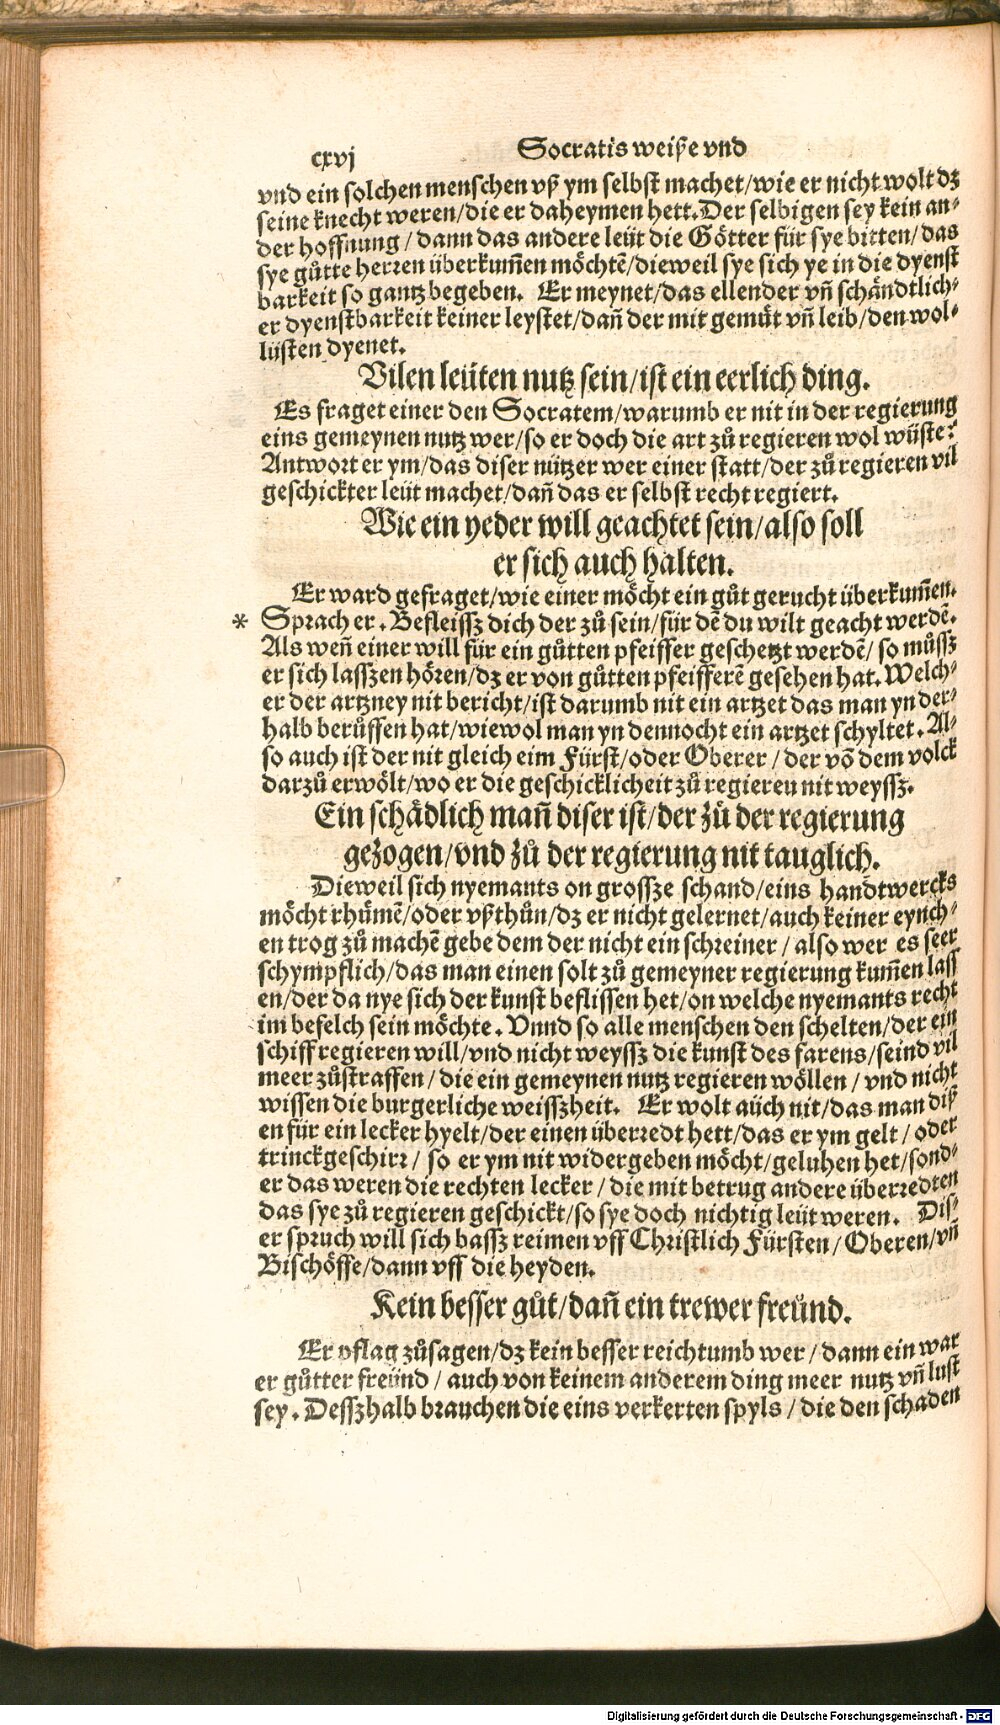 cxvj
Socratis weiße vnd
vnd ein solchen menschen vß ym selbst machet/wie er nicht wolt dz
seine knecht weren/die er daheymen hett. Der selbigen sey kein an⸗
der hoffnung/dann das andere leüt die Götter für sye bitten/das
sye gůtte herren überkum̄en möchtē/dieweil sye sich ye in die dyenst
barkeit so gantz begeben. Er meynet/das ellender vn̄ schändtlich⸗
er dyenstbarkeit keiner leystet/dan̄ der mit gemüt vn̄ leib/den wol⸗
lüsten dyenet.
Vilen leüten nutz sein/ist ein eerlich ding.
Es fraget einer den Socratem/warumb er nit in der regierung
eins gemeynen nutz wer/so er doch die art zů regieren wol wüste?
Antwort er ym/das diser nützer wer einer statt/der zů regieren vil
geschickter leüt machet/dan̄ das er selbst recht regiert.
Wie ein yeder will geachtet sein/also soll
er sich auch halten.
Er ward gefraget/wie einer möcht ein gůt gerucht überkum̄en.
* Sprach er. Befleissz dich der zů sein/für dē du wilt geacht werdē.
Als wen̄ einer will für ein gůtten pfeiffer geschetzt werdē/so můssz
er sich lasszen hören/dz er von gůtten pfeifferē gesehen hat. Welch⸗
er der artzney nit bericht/ist darumb nit ein artzet das man yn der⸗
halb berůffen hat/wiewol man yn dennocht ein artzet schyltet. Al⸗
so auch ist der nit gleich eim Fürst/oder Oberer/der vō dem volck
darzů erwölt/wo er die geschicklicheit zů regieren nit weyssz.
Ein schädlich man̄ diser ist/der zů der regierung
gezogen/vnd zů der regierung nit tauglich.
Dieweil sich nyemants on grossze schand/eins handtwercks
möcht rhümē/oder vßthůn/dz er nicht gelernet/auch keiner eynch⸗
en trog zů machē gebe dem der nicht ein schreiner/also wer es seer
schympflich/das man einen solt zů gemeyner regierung kum̄en lass
en/der da nye sich der kunst beflissen het/on welche nyemants recht
im befelch sein möchte. Vnnd so alle menschen den schelten/der ein
schiff regieren will/vnd nicht weyssz die kunst des farens/seind vil
meer zůstraffen/die ein gemeynen nutz regieren wöllen/vnd nicht
wissen die burgerliche weisszheit. Er wolt aüch nit/das man diß
en für ein lecker hyelt/der einen überredt hett/das er ym gelt/oder
trinckgeschirr/so er ym nit widergeben möcht/geluhen het/sond⸗
er das weren die rechten lecker/die mit betrug andere überredten
das sye zů regieren geschickt/so sye doch nichtig leüt weren. Dis⸗
er spruch will sich bassz reimen vff Christlich Fürsten/Oberen/vn̄
Bischöffe/dann vff die heyden.
Kein besser gůt/dan̄ ein trewer freünd.
Er pflag zůsagen/dz kein besser reichtumb wer/dann ein war
er gůtter freünd/auch von keinem anderem ding meer nutz vn̄ lust
sey. Desszhalb brauchen die eins verkerten spyls/die den schaden
Digitalisierung gefördert durch die Deutsche Forschungsgemeinschaft - DFG